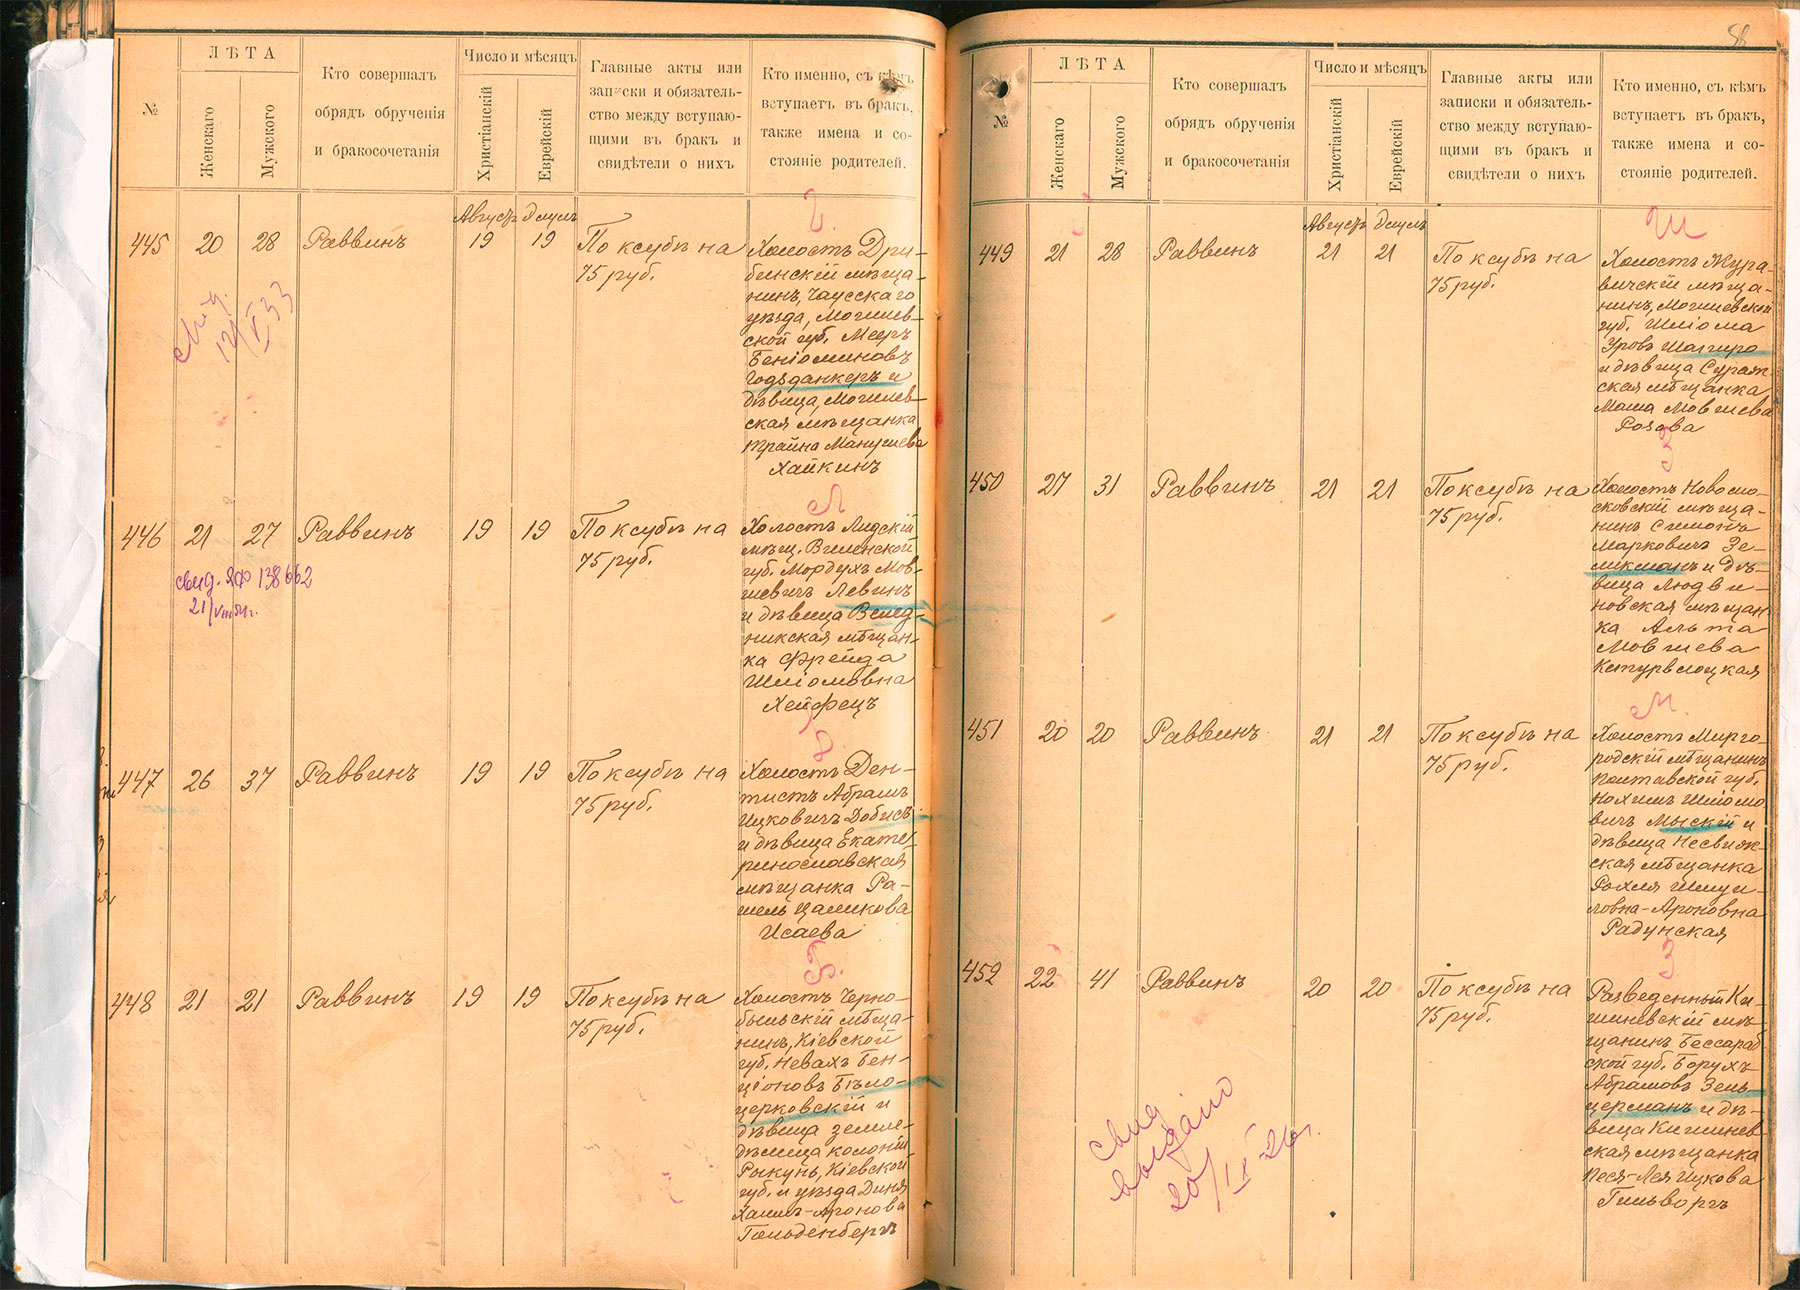 №
ЛѢТА
Женскаго
Мужского
Кто совершалъ
обрядъ обрученія
и бракосочетанія
Число и мѣсяцъ
Христіанскій
Еврейскій
Главные акты или
записки и обязатель-
ство между вступаю-
щими въ бракъ и
свидѣтели о нихъ
Кто именно, съ кѣмъ
вступаетъ въ бракъ,
также имена и со-
стояніе родителей.
Августъ
445 20 28 Раввинъ 19 19
По ксубѣ на
75 руб.
Холостъ Дри-
бинскій мѣща-
нинъ, Чаусскаго
уѣзда, Могилев-
ской губ. Мееръ
Беніоминовъ
и
дѣвица, Могилев-
ская мѣщанка
Хайкинъ
12/V 33
Л
446 21 27 Раввинъ 19 19
По ксубѣ на
75 руб.
Холостъ Лидскій
мѣщ. Виленской
губ. Мордухъ Мов-
шевичъ Левинъ
и дѣвица Велед-
никская мѣщан-
ка Фрейда
Шліомовна
Хейфецъ
свид. ЯФ 138662
447 26 37 Раввинъ 19 19
По ксубѣ на
75 руб.
Холостъ Ден-
тистъ Абрамъ
Ицковичъ Добисъ
и дѣвица Екате-
ринославская
мѣщанка Ра-
шель Цаликова
Исаева
Б.
448 21 21 Раввинъ 19 19
По ксубѣ на
75 руб.
Холостъ Черно-
быльскій мѣща-
нинъ, Кіевской
губ. Невахъ Бен-
ціоновъ Бѣло-
церковскій и
дѣвица земле-
дѣлица колоніи
Рыкунь, Кіевской
губ. и уѣзда Диня
Хаимъ-Аронова
Гольденбергъ
58
№
ЛѢТА
Женскаго
Мужского
Кто совершалъ
обрядъ обрученія
и бракосочетанія
Число и мѣсяцъ
Христіанскій
Еврейскій
Главные акты или
записки и обязатель-
ство между вступаю-
щими въ бракъ и
свидѣтели о нихъ
Кто именно, съ кѣмъ
вступаетъ въ бракъ,
также имена и со-
стояніе родителей.
Августъ
Ш
449 21 28 Раввинъ 21 21
По ксубѣ на
75 руб.
Холостъ Жура-
вичскій мѣща-
нинъ, Могилевской
губ. Шліома
Уровъ Шапиро
и дѣвица Сураж-
ская мѣщанка
Маша Мовшева
Розова
З
450 27 31 Раввинъ 21 21
По ксубѣ на
75 руб.
Холостъ Новомо-
сковскій мѣща-
нинъ Симонъ
Марковичъ Зе-
ликманъ и дѣ-
вица Людви-
новская мѣщан-
ка Альта
Мовшева
М.
451 20 20 Раввинъ 21 21
По ксубѣ на
75 руб.
Холостъ Мирго-
родскій мѣщанинъ
Полтавской губ.
Нохимъ Шліомо
вичъ Мыскій и
дѣвица Несвиж-
ская мѣщанка
Рохля Шмуи-
ловна-Ароновна
Радунская
З
452 22 41 Раввинъ 20 20
По ксубѣ на
75 руб.
Разведенный Ки-
шиневскій мѣ-
щанинъ Бессараб
ской губ. Борухъ
Абрамовъ Зель-
церманъ и дѣ-
вица Кишинев-
ская мѣщанка
Песя-Лея Ицкова
Гильворгъ
свид
выдано
20/IX 26